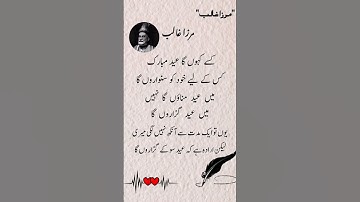 "مرزا غالب"
مرزا غالب
کسے کہوں گا عید مبارک
کس کے لیے خود کو سنواروں گا
میں عید مناؤں گا نہیں
میں عید گزاروں گا
یوں تو ایک مدت سے آنکھ نہیں لگی میری
لیکن ارادہ ہے کہ عید سو کے گزاروں گا